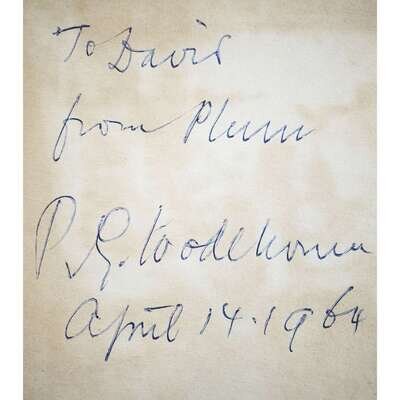 To David
from Plum
P. G. Wodehouse
April 14. 1964